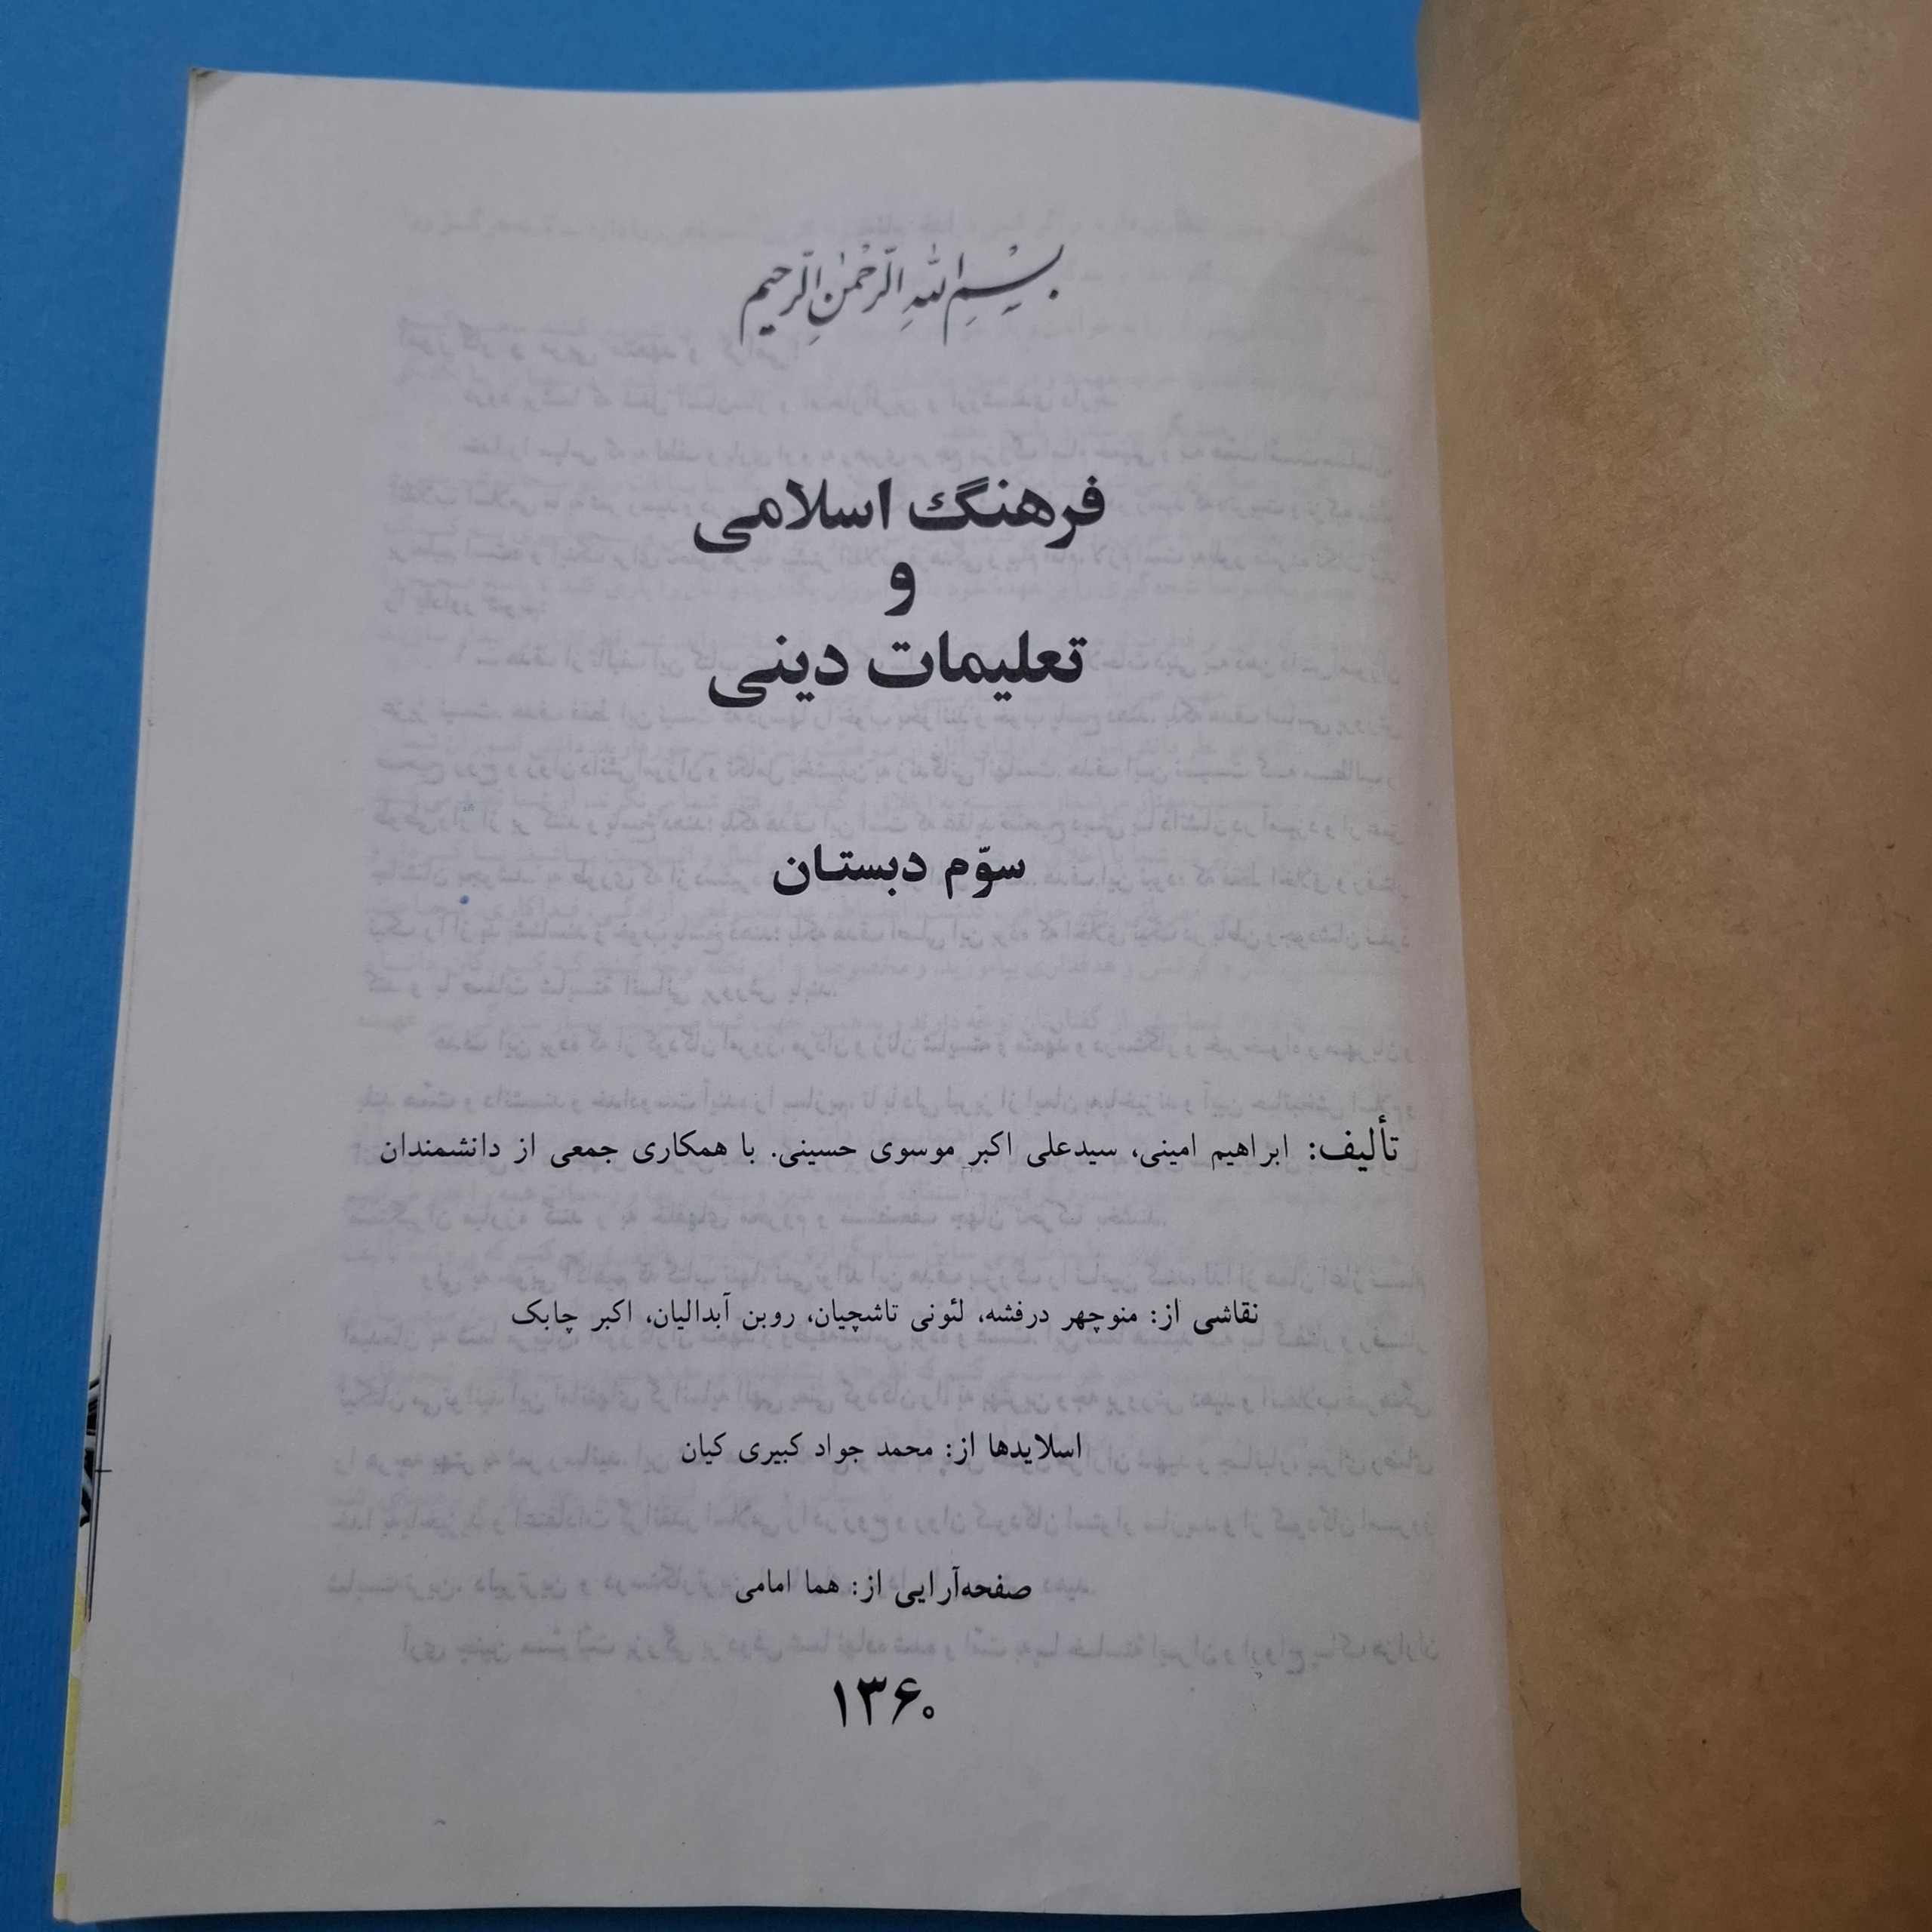 بِسْمِ اللهِ الرَّحْمٰنِ الرَّحیمِ
فرهنگ اسلامی
و
تعلیمات دینی
سوّم دبستان
تألیف: ابراهیم امینی، سیدعلی اکبر موسوی حسینی. با همکاری جمعی از دانشمندان
نقاشی از: منوچهر درفشه، لئونی تاشچیان، روبن آبدالیان، اکبر چابک
اسلایدها از: محمد جواد کبیری کیان
صفحه‌آرایی از: هما امامی
۱۳۶۰